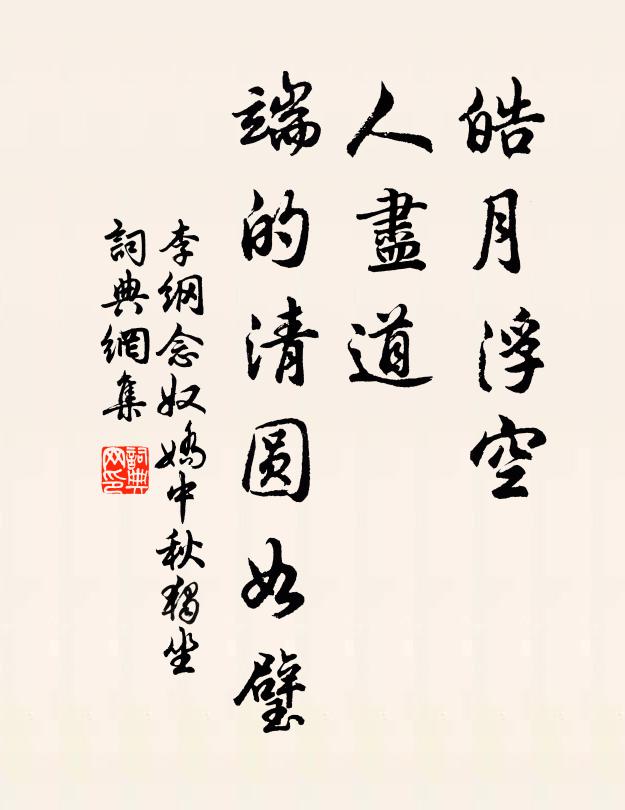 皓月浮空
人盡道
端的清圓如璧
李綱念奴嬌中秋獨坐
詞典網集
詞典
网印